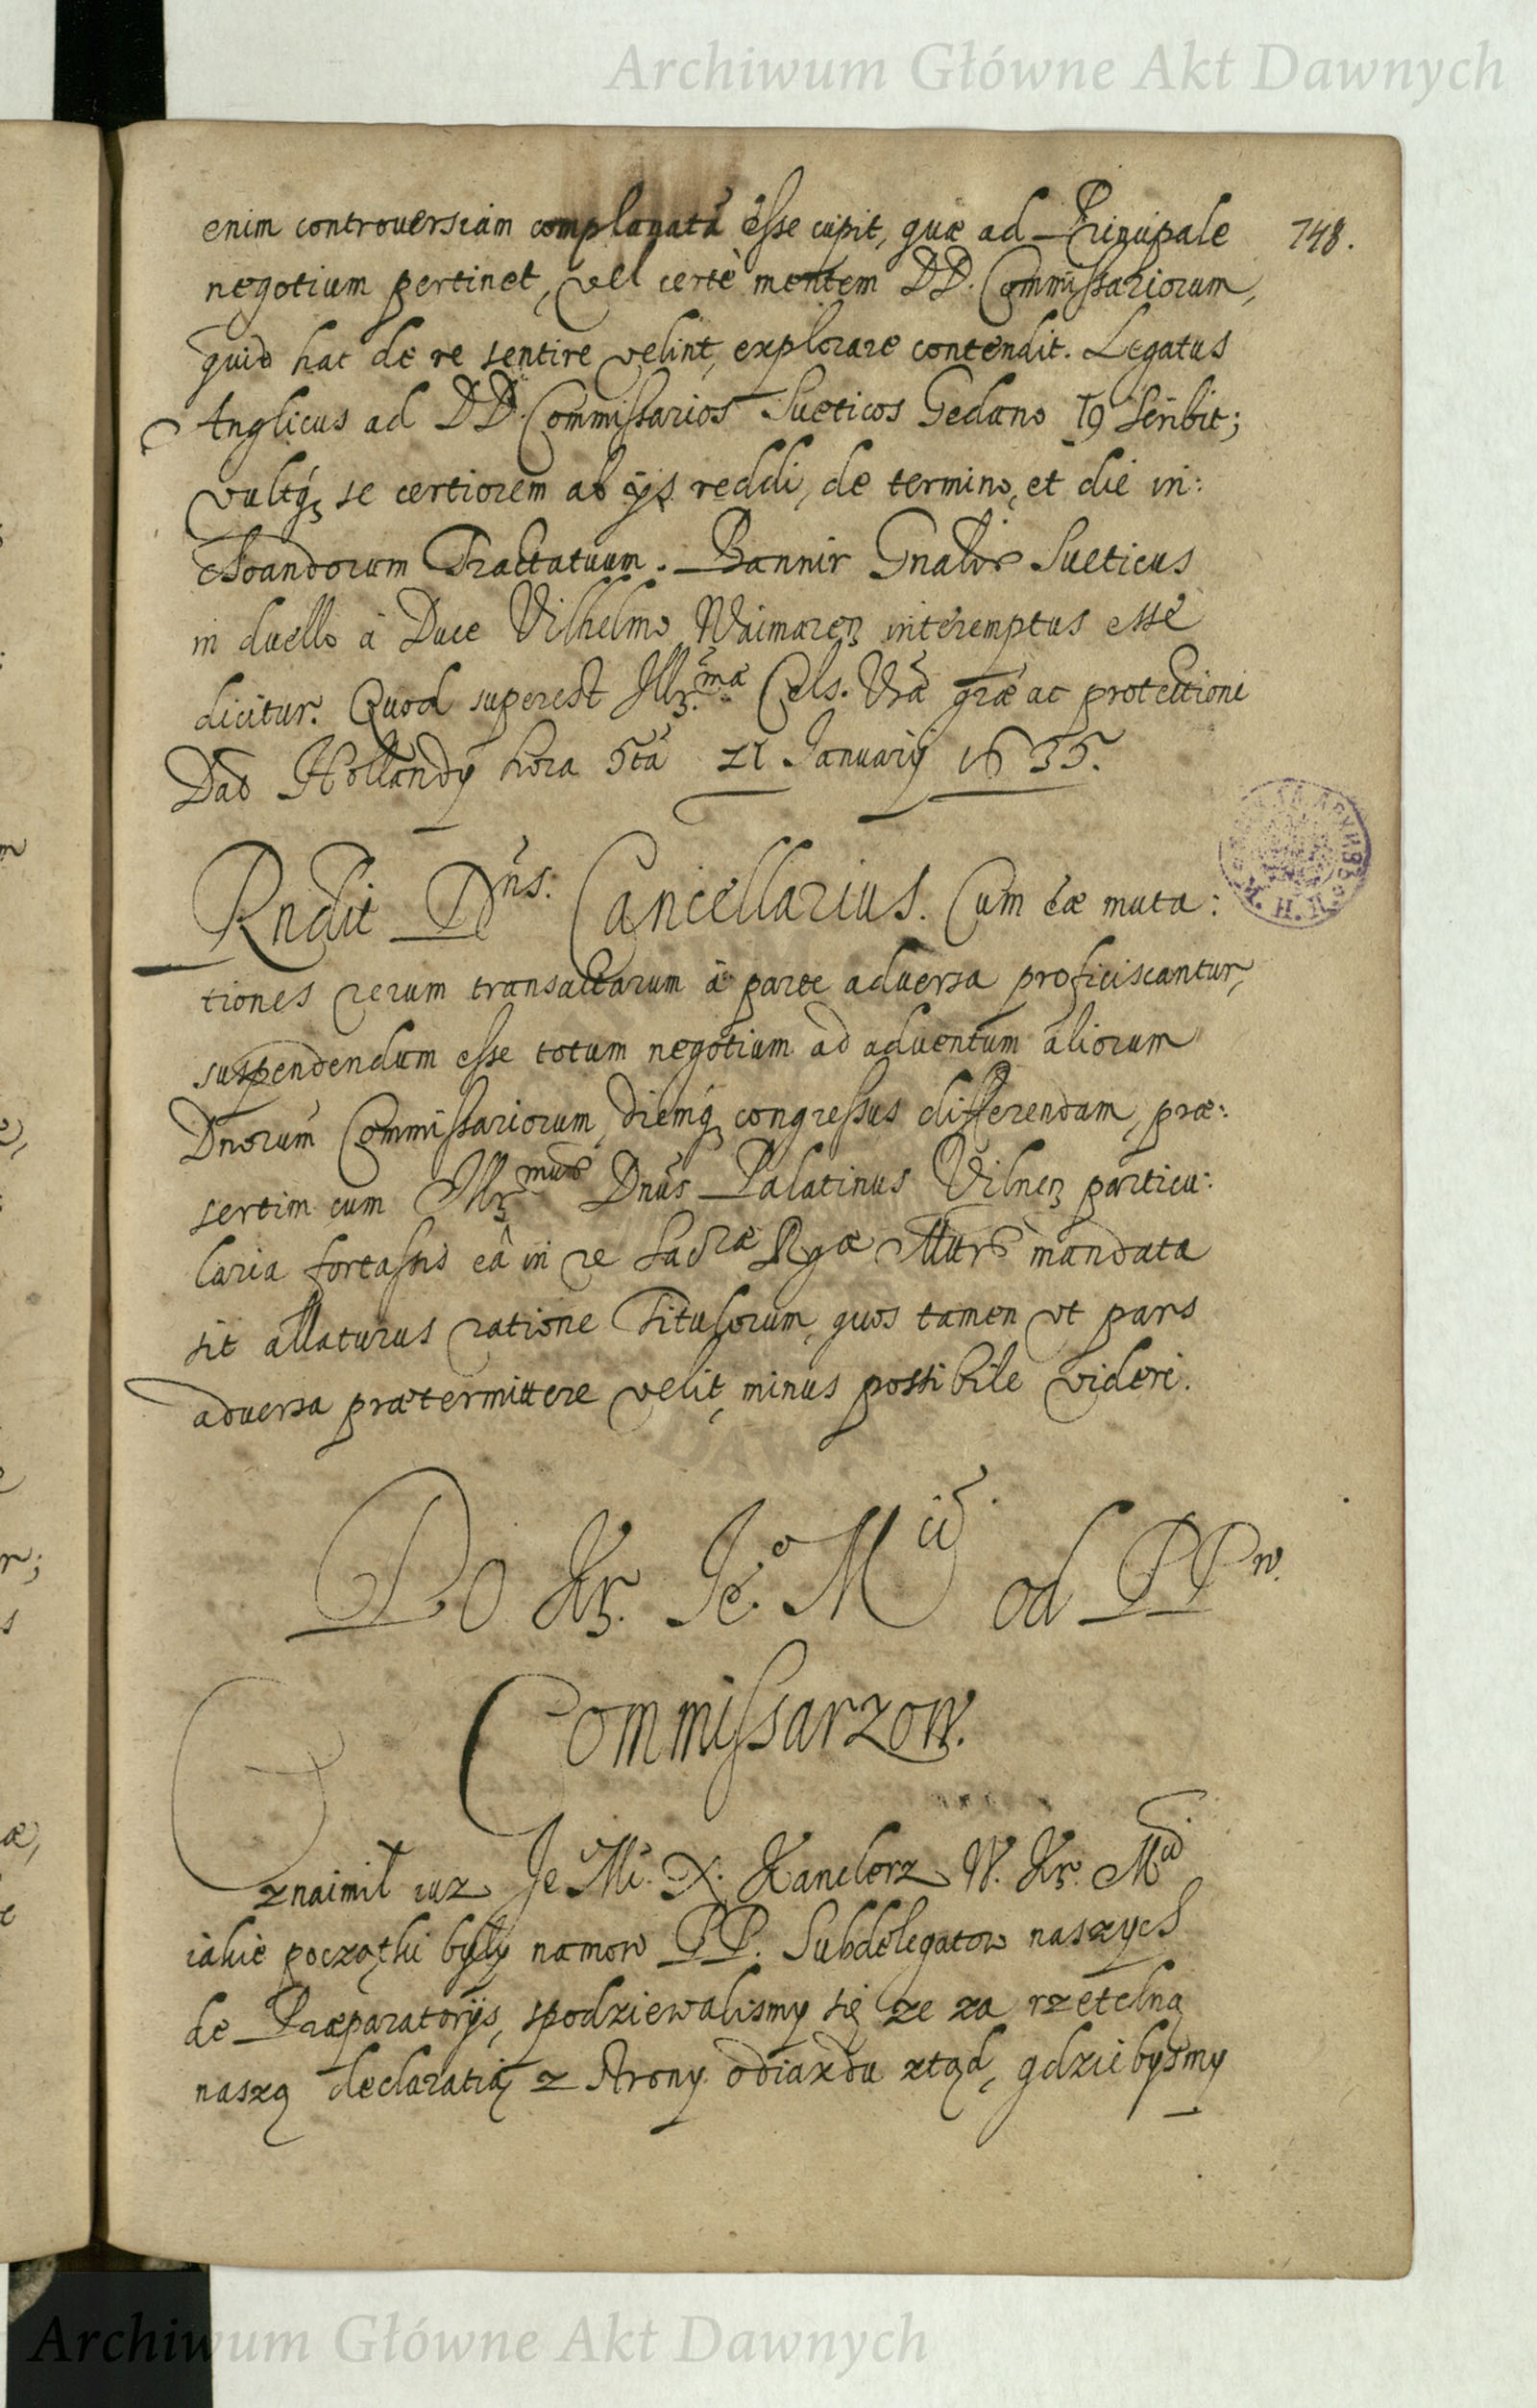 Archiwum Główne Akt Dawnych
748.
enim controuersiam complanatā esse cupit, quæ ad Principale
negotium pertinet, vel certè mentem DD. Commissariorum,
quid hac de re sentire velint, explorare contendit. Legatus
Anglicus ad DD. Commissarios Sueticos Gedano 19 scribit;
vultq́ꝫ se certiorem ab ijs reddi, de termino, et die in:
choandorum Tractatuum. Bannir Gnalis Sueticus
in duello à Duce Vilhelmo Waimareꝫ interemptus esse
dicitur. Quod superest Illꝫ.mæ Cels. Vrǣ græ ac protectioni
Dab Hollandÿ hora 5tâ 21 Januarij 1635.
Rndit Dns. Cancellarius. Cum eæ muta:
tiones rerum transactarum à parte aduersa proficiscantur,
suspendendum esse totum negotium ad aduentum aliorum
Dnorum Commissariorum, diemq́ꝫ congressus differendam, præ:
sertim cum Illꝫmus Dnus Palatinus Vilneꝫ particu:
laria fortassis eâ in re Sacræ Rgæ Mttis mandata
sit allaturus ratione Titulorum, quos tamen vt pars
aduersa prætermittere velit, minus possibile videri.
Do Kr. Je.o Mci od PPw.
Commissarzow.
Oznaimil iuz Je Mć. X. Kanclerz W. Kr. Mci
iakie początki były namow PP. Subdelegatow naszych
de Præparatorijs, spodziewalismy się ze za rzetelną
naszą declaratią z strony odiazdu ztąd, gdziebysmy
Archiwum Główne Akt Dawnych